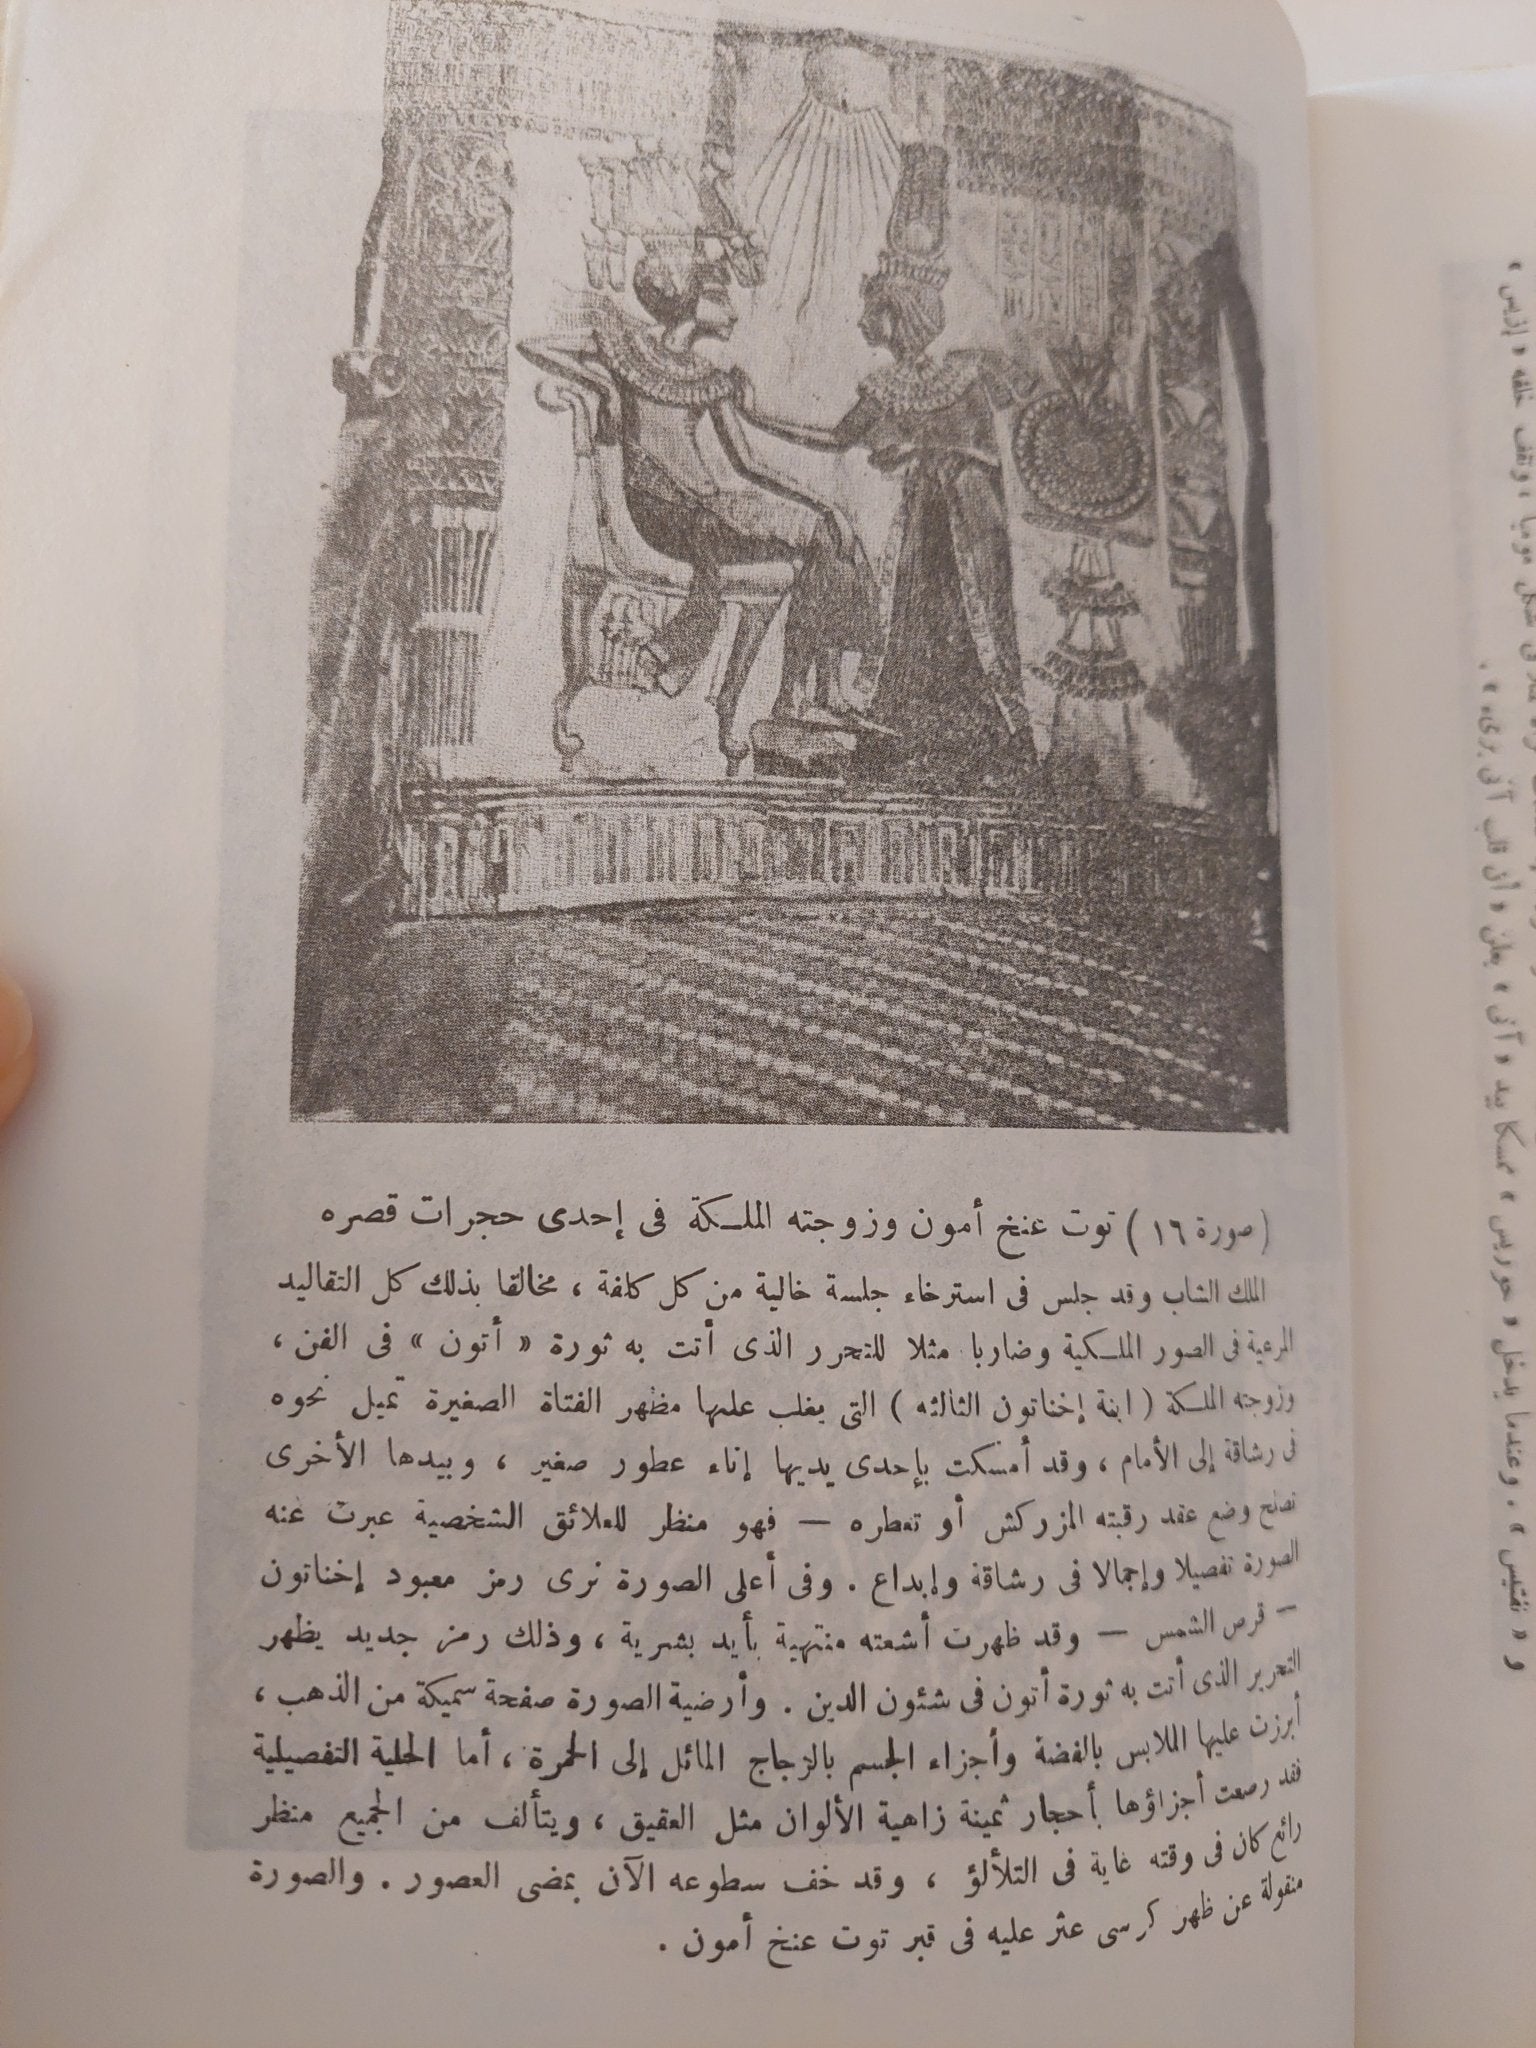 (صورة ١٦) توت عنخ أمون وزوجته الملكة فى إحدى حجرات قصره
الملك الشاب وقد جلس فى استرخاء جلسة خالية من كل كلفة ، مخالفا بذلك كل التقاليد
المرعية فى الصور الملكية وضاربا مثلا للتحرر الذى أتت به ثورة « أتون » فى الفن ،
وزوجته الملكة ( ابنة إخناتون الثالثه ) التى يغلب عليها مظهر الفتاة الصغيرة تميل نحوه
فى رشاقة إلى الأمام ، وقد أمسكت بإحدى يديها إناء عطور صغير ، وبيدها الأخرى
تصلح وضع عقد رقبته المزركش أو تعطره — فهو منظر للعلائق الشخصية عبرت عنه
الصورة تفصيلا وإجمالا فى رشاقة وإبداع . وفى أعلى الصورة نرى رمز معبود إخناتون
— قرص الشمس — وقد ظهرت أشعته منتهية بأيد بشرية ، وذلك رمز جديد يظهر
التحرير الذى أتت به ثورة أتون فى شئون الدين . وأرضية الصورة صفحة سميكة من الذهب ،
أبرزت عليها الملابس بالفضة وأجزاء الجسم بالزجاج المائل إلى الحمرة ، أما الحلية التفصيلية
فقد رصعت أجزاؤها بأحجار ثمينة زاهية الألوان مثل العقيق ، ويتألف من الجميع منظر
رائع كان فى وقته غاية فى التلألؤ ، وقد خف سطوعه الآن بمضى العصور . والصورة
منقولة عن ظهر كرسى عثر عليه فى قبر توت عنخ أمون .
وقف خلفه « إزيس »
و « نفتيس » . وعندما يدخل « حوريس » ممسكا بيد « آنى » يعلن « أن قلب آنى برىء » .